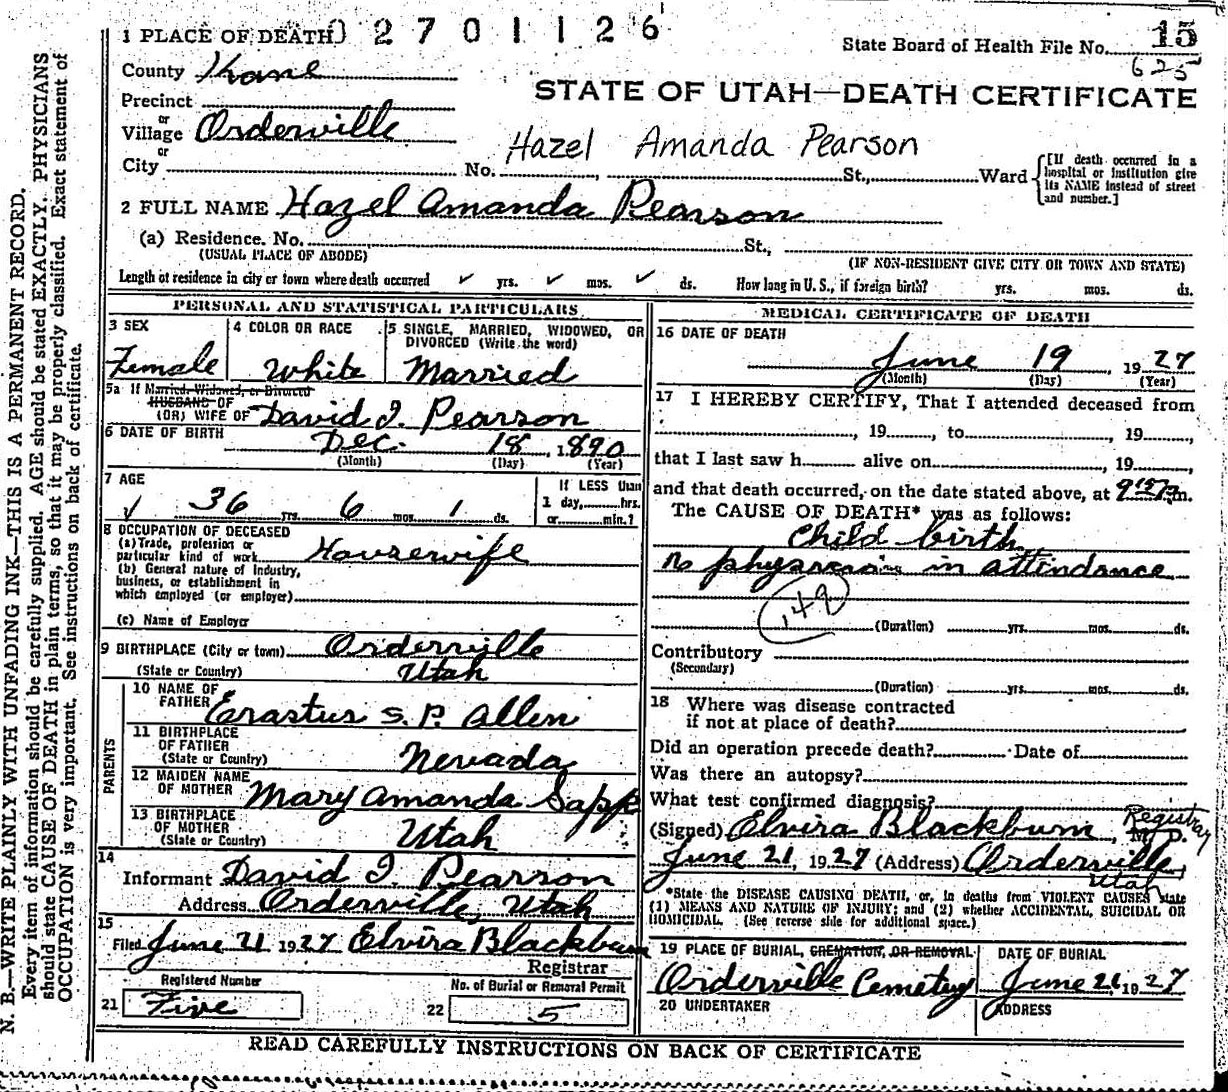 N. B.—WRITE PLAINLY WITH UNFADING INK—THIS IS A PERMANENT RECORD.
Every item of information should be carefully supplied. AGE should be stated EXACTLY. PHYSICIANS
should state CAUSE OF DEATH in plain terms, so that it may be properly classified. Exact statement of
OCCUPATION is very important. See instructions on back of certificate.
1 PLACE OF DEATH 02701126
State Board of Health File No. 15
625
County Kane
STATE OF UTAH—DEATH CERTIFICATE
Precinct
or
Village Orderville
or
Hazel Amanda Pearson
City No. St., Ward
[If death occurred in a
hospital or institution give
its NAME instead of street
and number.]
2 FULL NAME Hazel Amanda Pearson
(a) Residence. No. St.,
(USUAL PLACE OF ABODE) (IF NON-RESIDENT GIVE CITY OR TOWN AND STATE)
Length of residence in city or town where death occurred ✓ yrs. ✓ mos. ✓ ds. How long in U. S., if foreign birth? yrs. mos. ds.
PERSONAL AND STATISTICAL PARTICULARS
3 SEX
Female
4 COLOR OR RACE
White
5 SINGLE, MARRIED, WIDOWED, OR
DIVORCED (Write the word)
Married
5a If Married, Widowed, or Divorced
HUSBAND OF
(OR) WIFE OF David I. Pearson
6 DATE OF BIRTH Dec. 18, 1890
(Month) (Day) (Year)
7 AGE
✓ 36 yrs. 6 mos. 1 ds.
If LESS than
1 day, hrs.
or min.?
8 OCCUPATION OF DECEASED
(a) Trade, profession or
particular kind of work Housewife
(b) General nature of Industry,
business, or establishment in
which employed (or employer)
(c) Name of Employer
9 BIRTHPLACE (City or town) Orderville
(State or Country) Utah
PARENTS
10 NAME OF
FATHER Erastus S. P. Allen
11 BIRTHPLACE
OF FATHER
(State or Country) Nevada
12 MAIDEN NAME
OF MOTHER Mary Amanda Sapp
13 BIRTHPLACE
OF MOTHER
(State or Country) Utah
14
Informant David I. Pearson
Address Orderville, Utah
15
Filed June 21 1927 Elvira Blackburn
Registrar
Registered Number
21 Five
No. of Burial or Removal Permit
22 5
MEDICAL CERTIFICATE OF DEATH
16 DATE OF DEATH
June 19 1927
(Month) (Day) (Year)
17 I HEREBY CERTIFY, That I attended deceased from
, 19 , to , 19
that I last saw h alive on , 19
and that death occurred, on the date stated above, at m.
The CAUSE OF DEATH* was as follows:
Child birth
no physician in attendance
149
(Duration) yrs. mos. ds.
Contributory
(Secondary)
(Duration) yrs. mos. ds.
18 Where was disease contracted
if not at place of death?
Did an operation precede death? Date of
Was there an autopsy?
What test confirmed diagnosis?
(Signed) Elvira Blackburn, M. D. Registrar
June 21, 1927 (Address) Orderville,
Utah
*State the DISEASE CAUSING DEATH, or, in deaths from VIOLENT CAUSES state
(1) MEANS AND NATURE OF INJURY; and (2) whether ACCIDENTAL, SUICIDAL OR
HOMICIDAL. (See reverse side for additional space.)
19 PLACE OF BURIAL, CREMATION, OR REMOVAL
Orderville Cemetery
DATE OF BURIAL
June 21 1927
20 UNDERTAKER
ADDRESS
READ CAREFULLY INSTRUCTIONS ON BACK OF CERTIFICATE